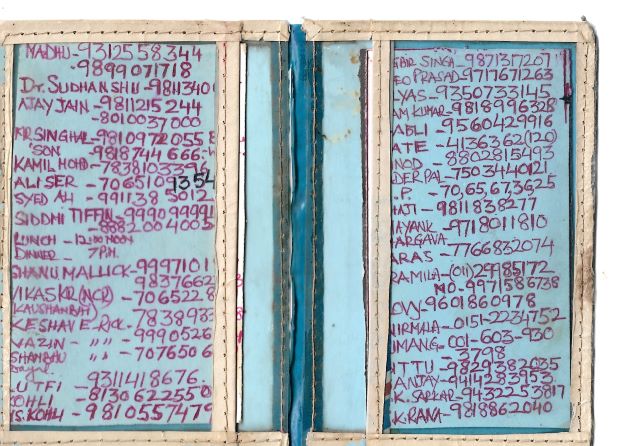 MADHU - 9312558344
- 9899071718
Dr. SUDHANSHU - 9811340
AJAY JAIN - 9811215244
- 8010037000
KR SINGHAL - 981097 2055 8
SON - 9818744 666
KAMIL MOHD - 783810339
ALI SER - 70651099 1354
SYED ALI - 991138 5012
SIDDHI TIFFIN - 999099991
- 8882004005
LUNCH - 12:00 NOON
DINNER - 7 P.M.
SHANU MALLICK - 9997101
9837662
VIKAS KR (NCR) - 706522 8
KAUSHAMBHI
KESHAV E-RICK - 783893
VAZIN - " " - 9990526
SHAMBHU - 7076506
LUTFI - 9311418676
KOHLI - 8130622550
I.S. KOHLI - 981055747 9
BIR SINGA - 987137207
EO PRASAD - 9717671263
LYAS - 9350733145
AM KUMAR - 9818996328
ABLI - 9560429916
ATE - 4136362 (120)
NOD - 8802815493
DER PAL - 7503440121
.P. - 70,65,67,3625
HAJI - 9811838277
MAYANK - 9718011810
BARGAVA
ARAS - 7766832074
RAMILA - (011) 29985172
MO - 9971586738
OVY - 9601860978
NIRMALA - 0151-2234752
UMANG - 001-603-930
3798
ITTU - 9829382035
ANJAY - 9414283953
K. SARKAR - 9432253817
K. RANA - 9818862040